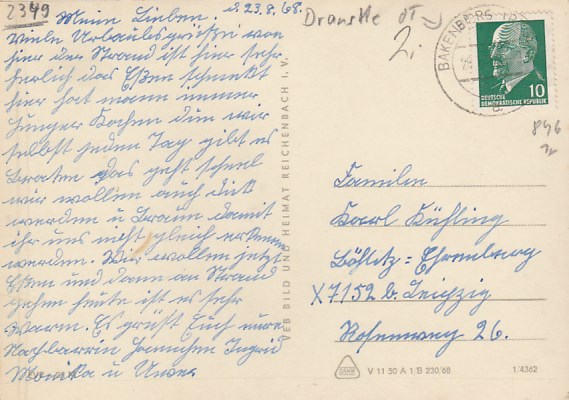 2349
Meine Lieben. d. 23.8.68.
Viele Urlaubsgrüße von
hier der Strand ist hier sehr
herlich das Eßen schmekt
hier hat mann immer
Hunger Kochen dun wir
selbst jeden Tag gibt es
Braten das geht schnel
wir wollen auch dick
werden u Braun damit
ihr uns nicht gleich erkennt
werden. Wir wollen jetzt
Eßen und dann an Strand
gehen heute ist es sehr
warm. Es grüßt Euch eure
Nachbarrin Hannchen Ingrid
Monika u Uwe.
Dranske OT
2.
BAKENBERG
10
DEUTSCHE
DEMOKRATISCHE REPUBLIK
846
Familien
Karl Kühling
Böhlitz-Ehrenberg
X7152 b. Leipzig
Rosenweg 26.
VEB BILD UND HEIMAT REICHENBACH I. V.
V 11 50 A 1/B 230/68
1/4362